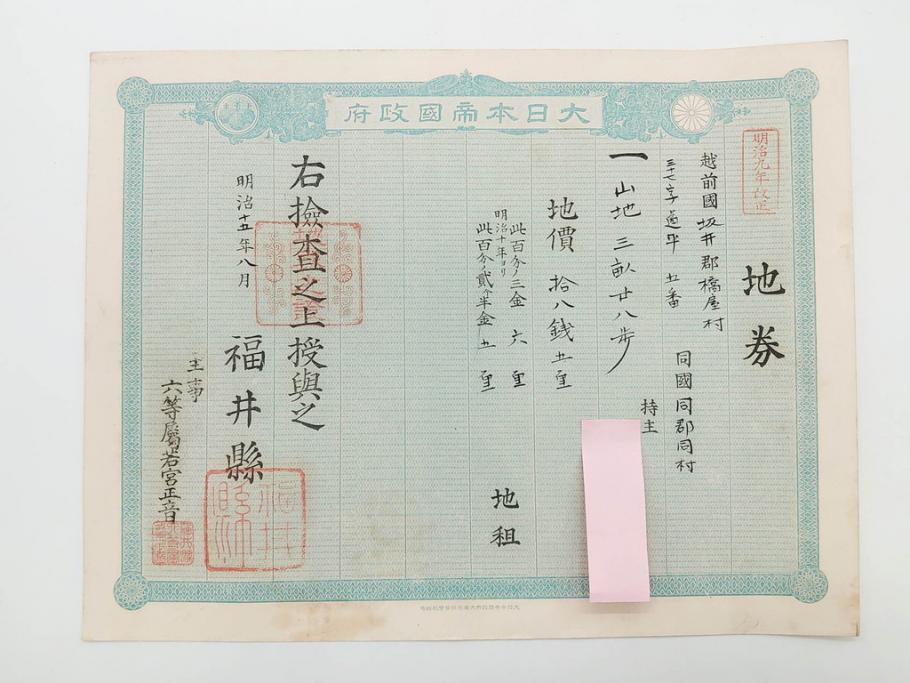 大日本帝國政府
明治九年改正
地券
越前國坂井郡橋屋村
三十七字
五番
同國同郡同村
持主
一山地三畝廿八歩
地價拾八錢五厘
此百分ノ三金六厘
明治十年ヨリ
此百分ノ貳ケ半金五厘
地租
右撿査之上授與之
明治十五年八月
福井縣
主事
六等屬若宮正音